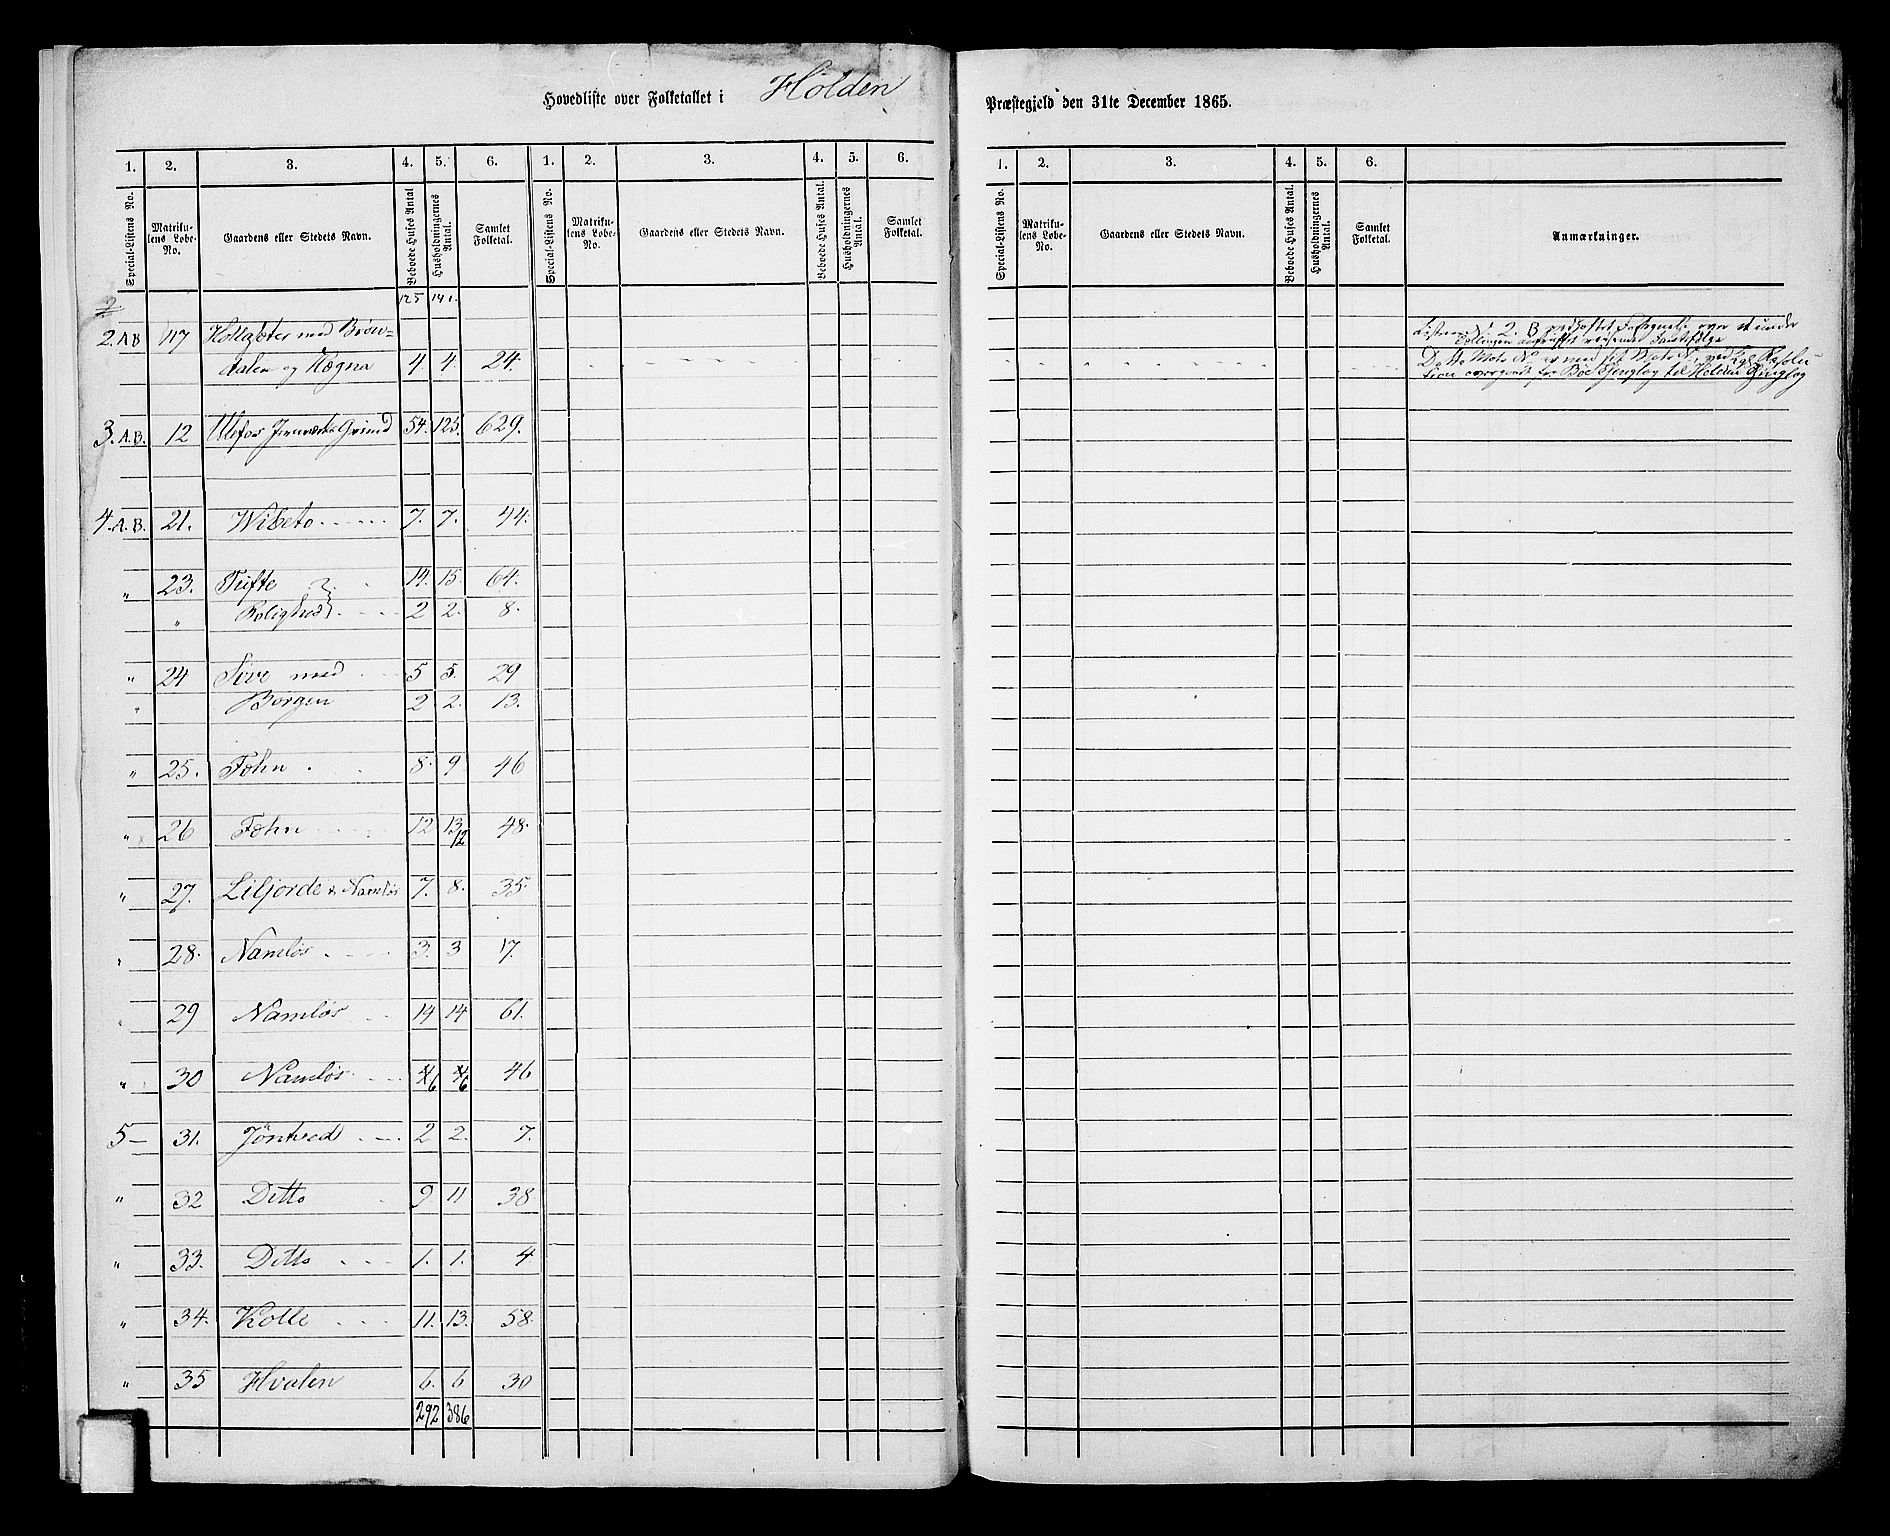 Hovedliste over Folketallet i Holden
Præstegjeld den 31te December 1865.
1. 2. 3. 4. 5. 6. 1. 2. 3. 4. 5. 6.
1. 2. 3. 4. 5. 6.
Special-Listens No. Matrikulens Løbe-No. Gaardens eller Stedets Navn. Beboede Huses Antal Husholdningernes Antal. Samlet Folketal. Special-Listens No. Matrikulens Løbe-No. Gaardens eller Stedets Navn. Beboede Huses Antal. Husholdningernes Antal. Samlet Folketal.
Special-Listens No. Matrikulens Løbe-No. Gaardens eller Stedets Navn. Beboede Huses Antal. Husholdningernes Antal. Samlet Folketal. Anmærkninger.
2
125 141.
2. A B 117 med
dalen og Rægna 4. 4. 24.
3. A. B. 12 Ulefos Jernværks Grund 54. 125. 629.
4. A. B. 21. Wibeto 7. 7. 44.
" 23. Tufte 14. 15. 64.
" Rolighed 2 2. 8.
" 24 Sive med 5 5. 29
" Borgen 2 2. 13.
" 25. Fehn 8. 9. 46
" 26 Fehn 12 13 12 48.
" 27. Liljorde & Namløs 7. 8. 35.
" 28. Namløs 3. 3 17.
" 29 Namløs 14 14 61.
" 30 Namløs 6 6 46
5 — 31. Jöntved 2 2. 7.
" 32 Ditto 9. 11 38
" 33. Ditto 1. 1. 4
" 34. Kolle 11. 13. 58.
" 35 Hvalen 6. 6 30
292 386
2. B over
med sit ved Kgl.
for Bøe til Holden